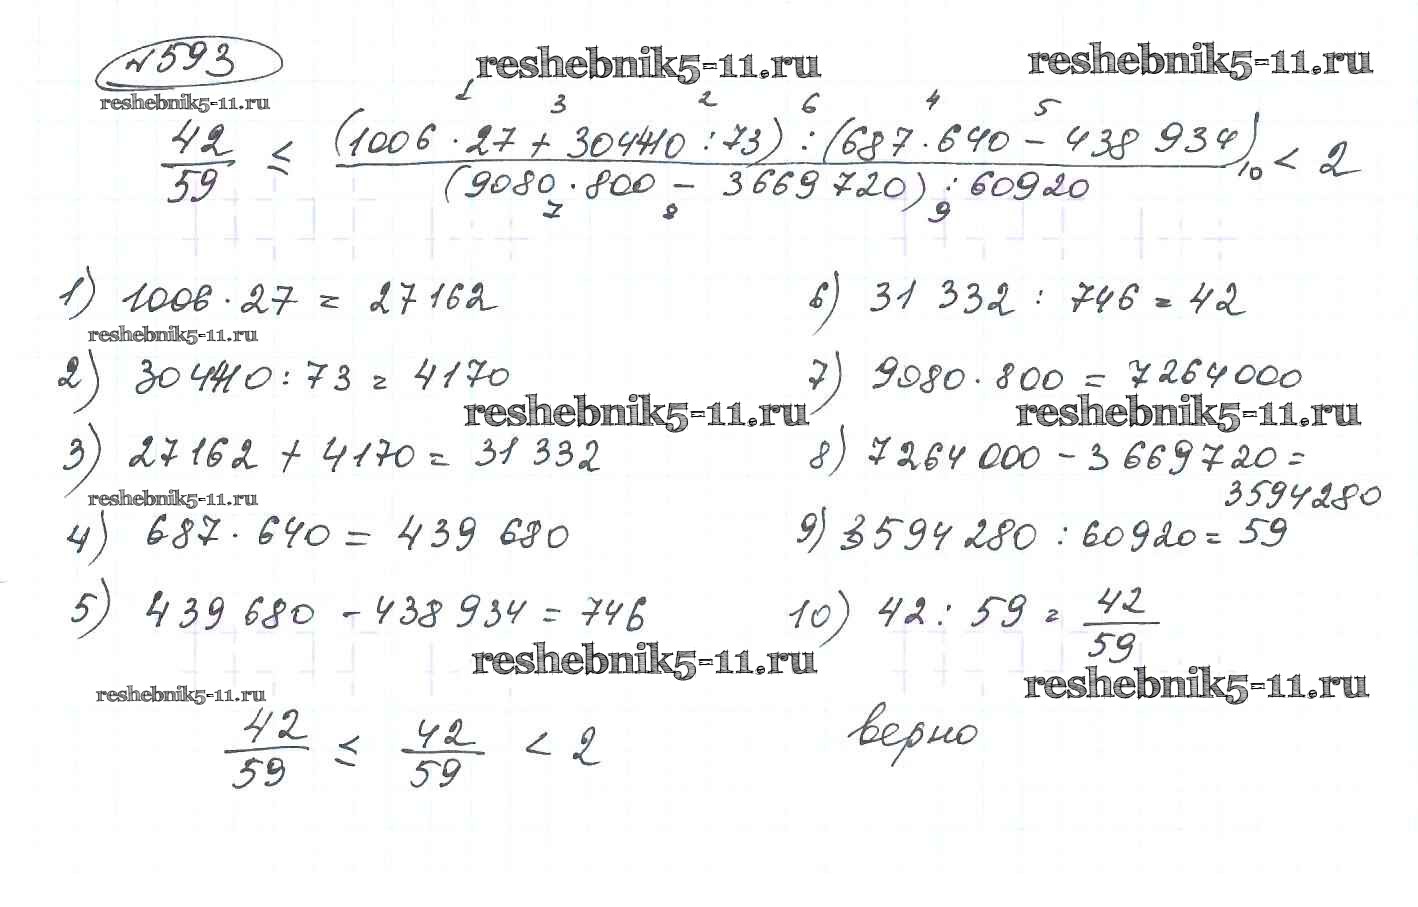 №593
reshebnik5-11.ru reshebnik5-11.ru
reshebnik5-11.ru
1 3 2 6 4 5
42/59 ≤ (1006 · 27 + 304410 : 73) : (687 · 640 − 438 934) / (9080 · 800 − 3669 720) : 60920 < 2
7 8 9 10
1) 1006 · 27 = 27162
6) 31 332 : 746 = 42
reshebnik5-11.ru
2) 304410 : 73 = 4170
7) 9080 · 800 = 7264000
reshebnik5-11.ru reshebnik5-11.ru
3) 27162 + 4170 = 31 332
8) 7264 000 − 3 669720 =
3594280
reshebnik5-11.ru
4) 687 · 640 = 439 680
9) 3594 280 : 60920 = 59
5) 439 680 − 438 934 = 746
10) 42 : 59 = 42/59
reshebnik5-11.ru reshebnik5-11.ru
reshebnik5-11.ru
42/59 ≤ 42/59 < 2 верно